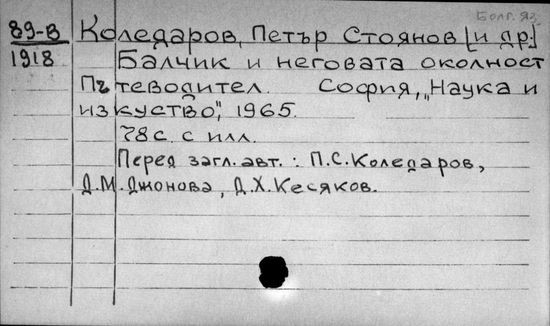 Болг. яз.
89-В Коледаров, Петър Стоянов [и др.]
1918 Балчик и неговата околност
Пътеводител. София, „Наука и
изкуство", 1965.
78 с. с илл.
Перед загл. авт.: П.С. Коледаров,
Д.М. Джонова, Д.Х. Кесяков.